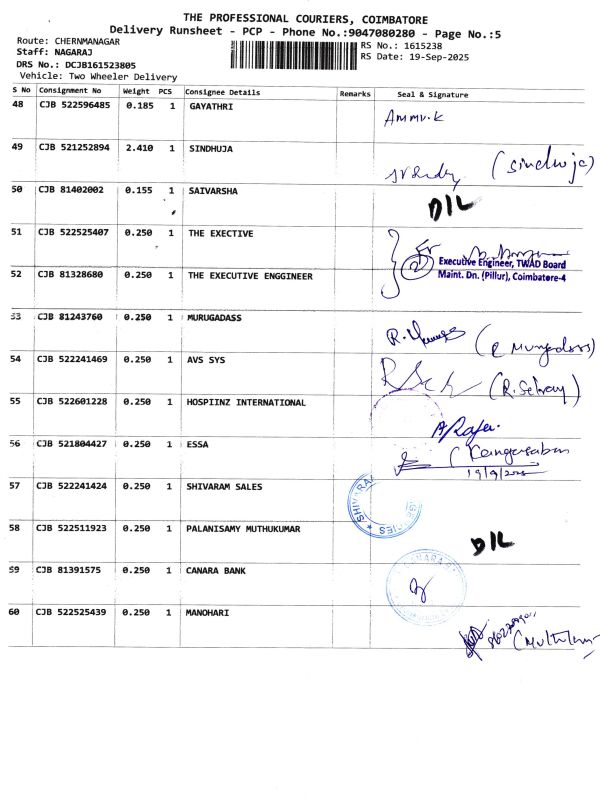 THE PROFESSIONAL COURIERS, COIMBATORE
Delivery Runsheet - PCP - Phone No.:9047080280 - Page No.:5
Route: CHERNMANAGAR
RS No.: 1615238
Staff: NAGARAJ
RS Date: 19-Sep-2025
DRS No.: DCJB161523805
Vehicle: Two Wheeler Delivery
S No Consignment No Weight PCS Consignee Details Remarks Seal & Signature
48 CJB 522596485 0.185 1 GAYATHRI
Ammu.K
49 CJB 521252894 2.410 1 SINDHUJA
(Sindhuja)
50 CJB 81402002 0.155 1 SAIVARSHA
D/L
51 CJB 522525407 0.250 1 THE EXECTIVE
Executive Engineer, TWAD Board
52 CJB 81328680 0.250 1 THE EXECUTIVE ENGGINEER
Maint. Dn. (Pillur), Coimbatore-4
53 CJB 81243760 0.250 1 MURUGADASS
54 CJB 522241469 0.250 1 AVS SYS
55 CJB 522601228 0.250 1 HOSPIINZ INTERNATIONAL
56 CJB 521804427 0.250 1 ESSA
57 CJB 522241424 0.250 1 SHIVARAM SALES
SHIVARA
58 CJB 522511923 0.250 1 PALANISAMY MUTHUKUMAR
D/L
59 CJB 81391575 0.250 1 CANARA BANK
60 CJB 522525439 0.250 1 MANOHARI